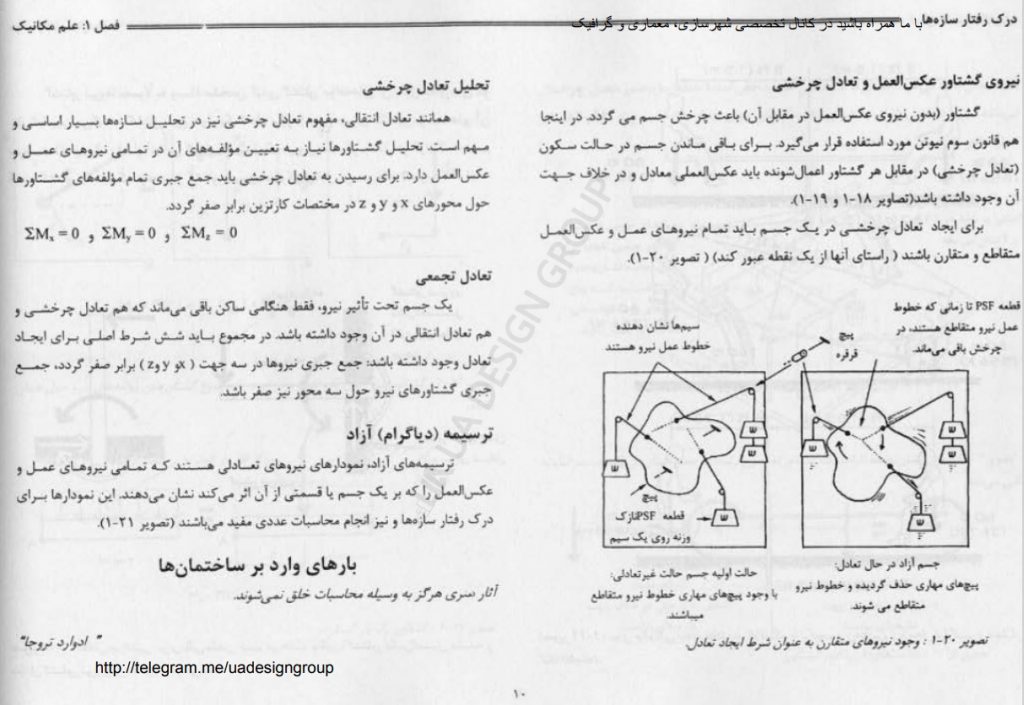 درک رفتار سازه‌ها
با ما همراه باشید در کانال تخصصی شهرسازی، معماری و گرافیک
فصل ۱: علم مکانیک
نیروی گشتاور عکس‌العمل و تعادل چرخشی
گشتاور (بدون نیروی عکس‌العمل در مقابل آن) باعث چرخش جسم می گردد. در اینجا
هم قانون سوم نیوتن مورد استفاده قرار می‌گیرد. بـرای باقی مانـدن جسـم در حالت سـکون
(تعادل چرخشی) در مقابل هر گشتاور اعمال‌شونده باید عکس‌العملی معادل و در خلاف جهـت
آن وجود داشته باشد(تصاویر ۱۸-۱ و ۱۹-۱).
برای ایجاد تعادل چرخشـی در یـک جسـم بایـد تمـام نیروهـای عمـل و عکس‌العمـل
متقاطع و متقارن باشند ( راستای آنها از یک نقطه عبور کند) ( تصویر ۲۰-۱).
قطعه PSF تا زمانی که خطوط
عمل نیرو متقاطع هستند، در
چرخش باقی می‌ماند
سیم‌ها نشان دهنده
خطوط عمل نیرو هستند
پیچ
قرقره
W
W
W
W
W
W
W
W
پیچ
قطعه PSFنازک
وزنه روی یک سیم
جسم آزاد در حال تعادل:
پیچ‌های مهاری حذف گردیده و خطوط نیرو
متقاطع می شوند.
حالت اولیه جسم حالت غیرتعادلی:
با وجود پیچ‌های مهاری خطوط نیرو متقاطع
میباشند.
تصویر ۲۰-۱ : وجود نیروهای متقارن به عنوان شرط ایجاد تعادل.
تحلیل تعادل چرخشی
همانند تعادل انتقالی، مفهوم تعادل چرخشی نیز در تحلیـل سـازه‌ها بسـیار اساسـی و
مـهم اسـت. تحلیـل گشـتاورها نیـاز بـه تعییـن مؤلفـه‌های آن در تمـامی نیروهـای عمـل و
عکس‌العمل دارد. برای رسیدن به تعادل چرخشی باید جمع جبری تمام مؤلفه‌های گشـتاورها
حول محورهای x و y و z در مختصات کارتزین برابر صفر گردد.
ΣMx = 0 و ΣMy = 0 و ΣMz = 0
تعادل تجمعی
یک جسم تحت تأثیر نیرو، فقط هنگامی ساکن باقی می‌ماند که هم تعادل چرخشـی و
هم تعادل انتقالی در آن وجود داشته باشد. در مجموع بـاید شـش شـرط اصلـی بـرای ایجـاد
تعادل وجود داشته باشد: جمع جبری نیروها در سه جهت ( x و y و z ) برابر صفر گردد، جمـع
جبری گشتاورهای نیرو حول سه محور نیز صفر باشد.
ترسیمه (دیاگرام) آزاد
ترسیمه‌های آزاد، نمودارهای نیروهای تعـادلی هسـتند کـه تمـامی نیروهـای عمـل و
عکس‌العمل را که بر یک جسم یا قسمتی از آن اثر می‌کند نشان می‌دهند. این نمودارها بـرای
درک رفتار سازه‌ها و نیز انجام محاسبات عددی مفید می‌باشند (تصویر ۲۱-۱).
بارهای وارد بر ساختمان‌ها
آثار هنری هرگز به وسیله محاسبات خلق نمی‌شوند.
" ادوارد تروجا"
http://telegram.me/uadesigngroup
۱۰